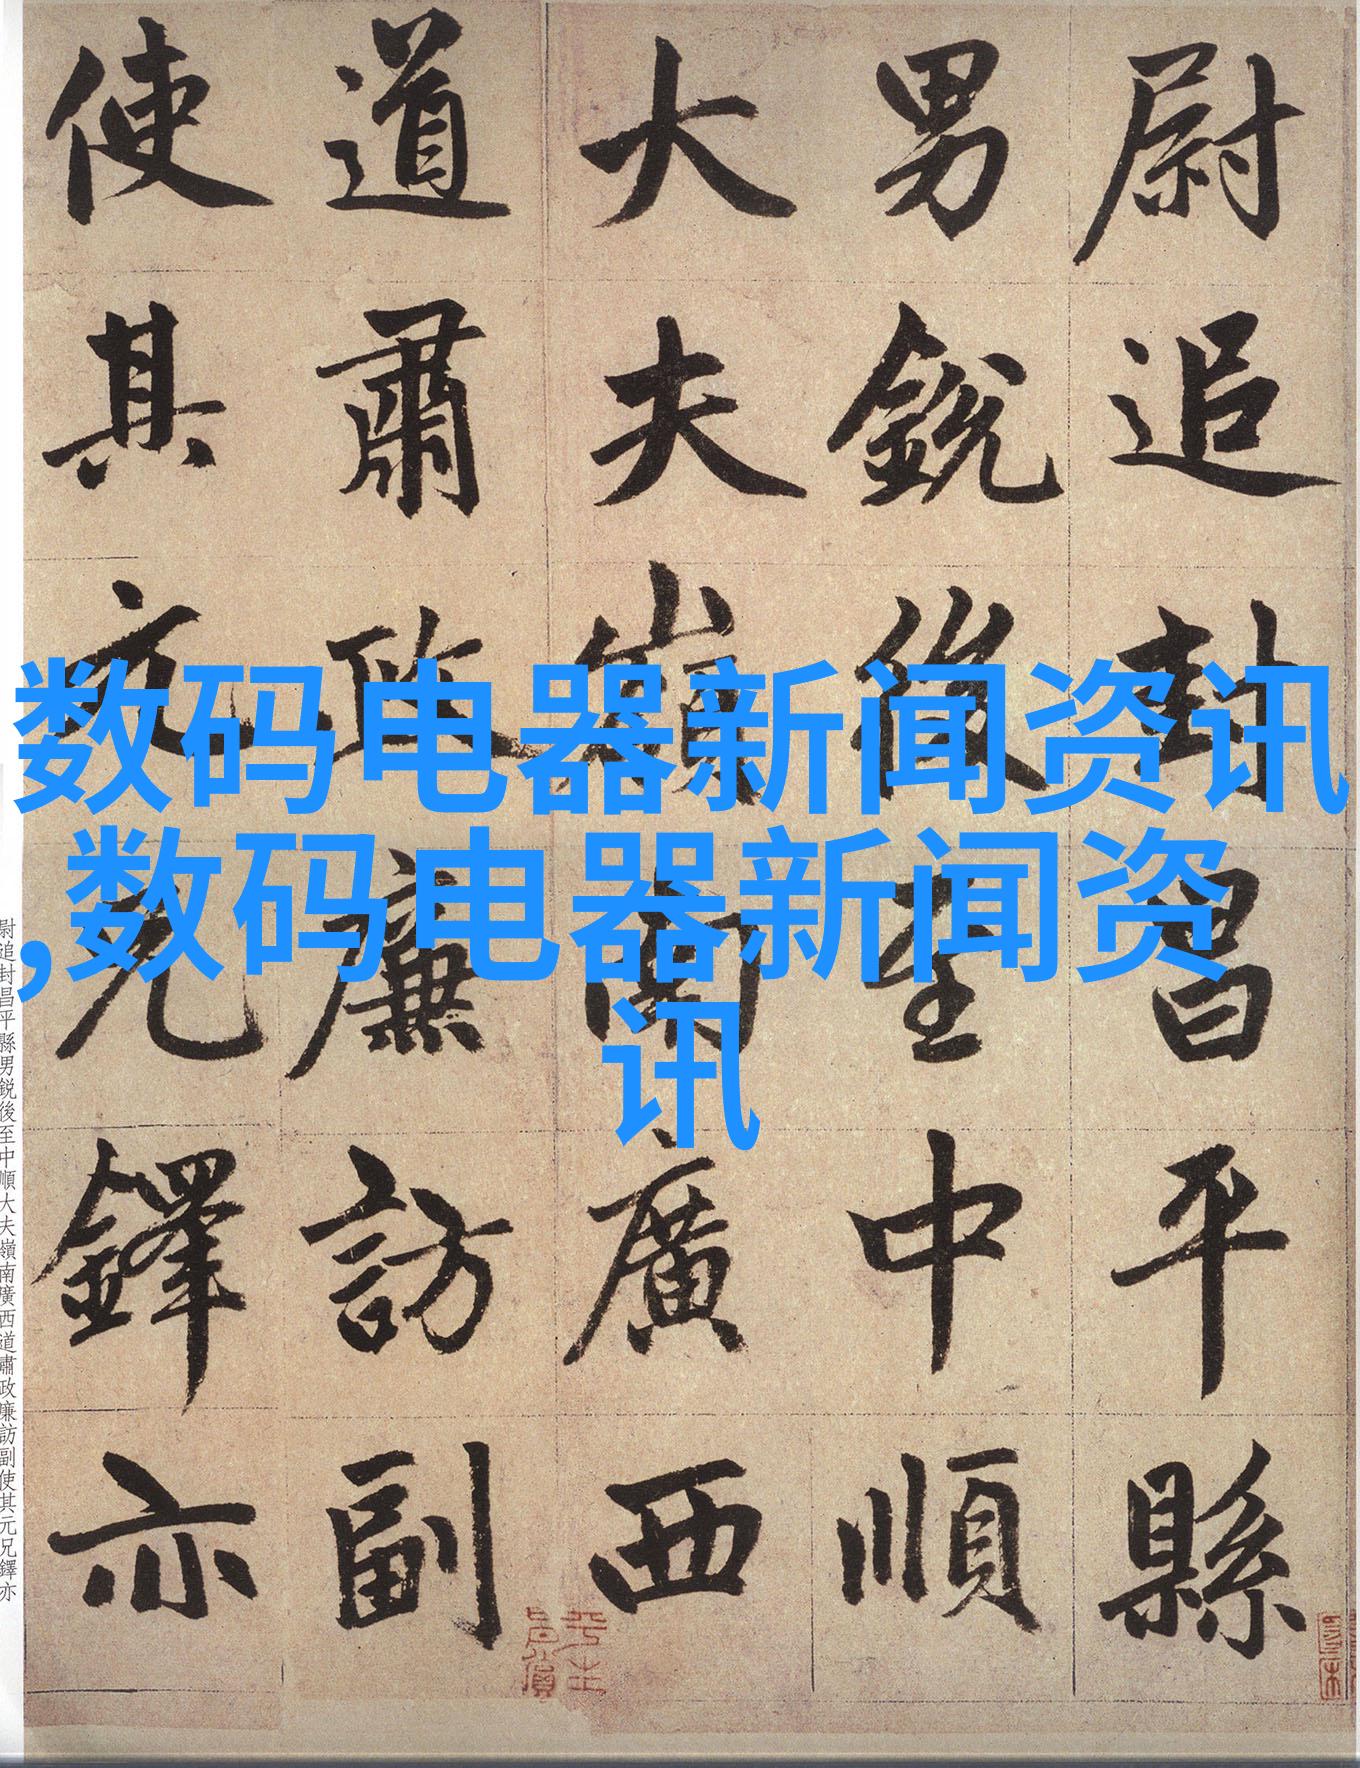 尉追封昌平縣
男銳後至中順
大夫嶺南廣西
道肅政廉訪副
使其元兄鐸亦
数码电器新闻资讯
,数码电器新闻资
讯
尉追封昌平縣男鋭後至中順大夫嶺南廣西道肅政廉訪副使其元兄鐸亦